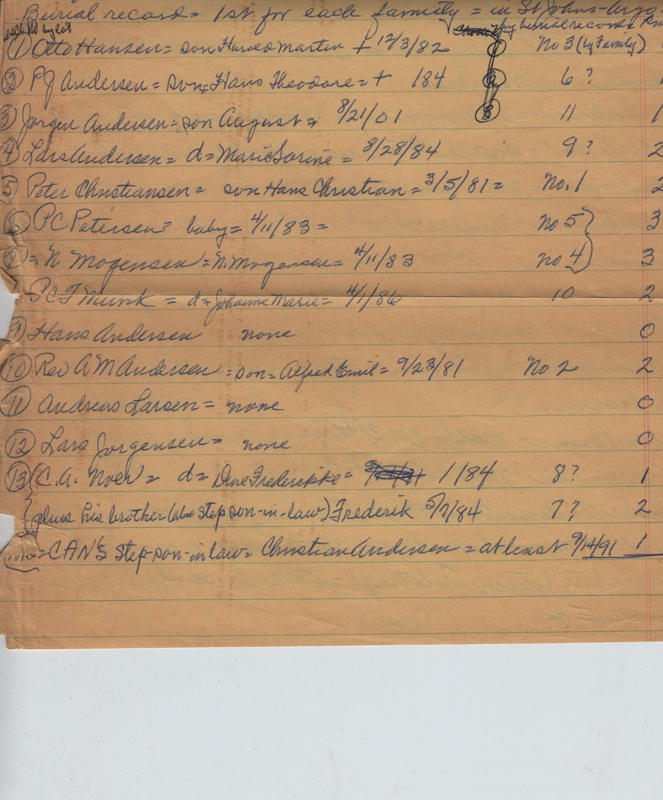 Burial record = 1st for each family = in St Johns-
① Otto Hansen = son Harold Martin + 12/3/82 ① No 3 (by Family)
② PJ Andersen = son = Hans Theodore = + 184 ② 6 ? 
③ Jorgen Andersen = son August = 8/21/01 ③ 11 1
④ Lars Andersen = d = Marie Sorine = 8/28/84 9 ? 2
⑤ Peter Christiansen = son Hans Christian = 3/5/81 = No. 1 2
⑥ PC Petersen = baby = 4/11/83 = No 5 } 3
= N Mogensen = N. Mogensen = 4/11/83 no 4 } 3
PCT Munk = d = Johanne Marie = 4/1/86 10 2
9 Hans Andersen none 0
⑩ Rev A M Andersen = son = Alfred Emil = 9/23/81 No 2 2
⑪ Andreas Larsen = none 0
⑫ Lars Jorgensen = none 0
⑬ (C. A. Noeh = d = Dine Frederikke = 1/84 8 ? 1
{ (plus his brother (also step son-in-law) Frederik 5/7/84 7 ? 2
= CAN's Step-son-in law = Christian Andersen = at least 9/14/91 1